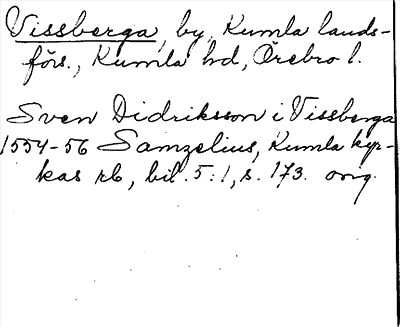 Vissberga, by, Kumla lands-
förs., Kumla hd, Örebro l.
Sven Didriksson i Vissberga
1554-56 Samzelius, Kumla kyr-
kas rb, bil. 5:1, s. 173. orig.